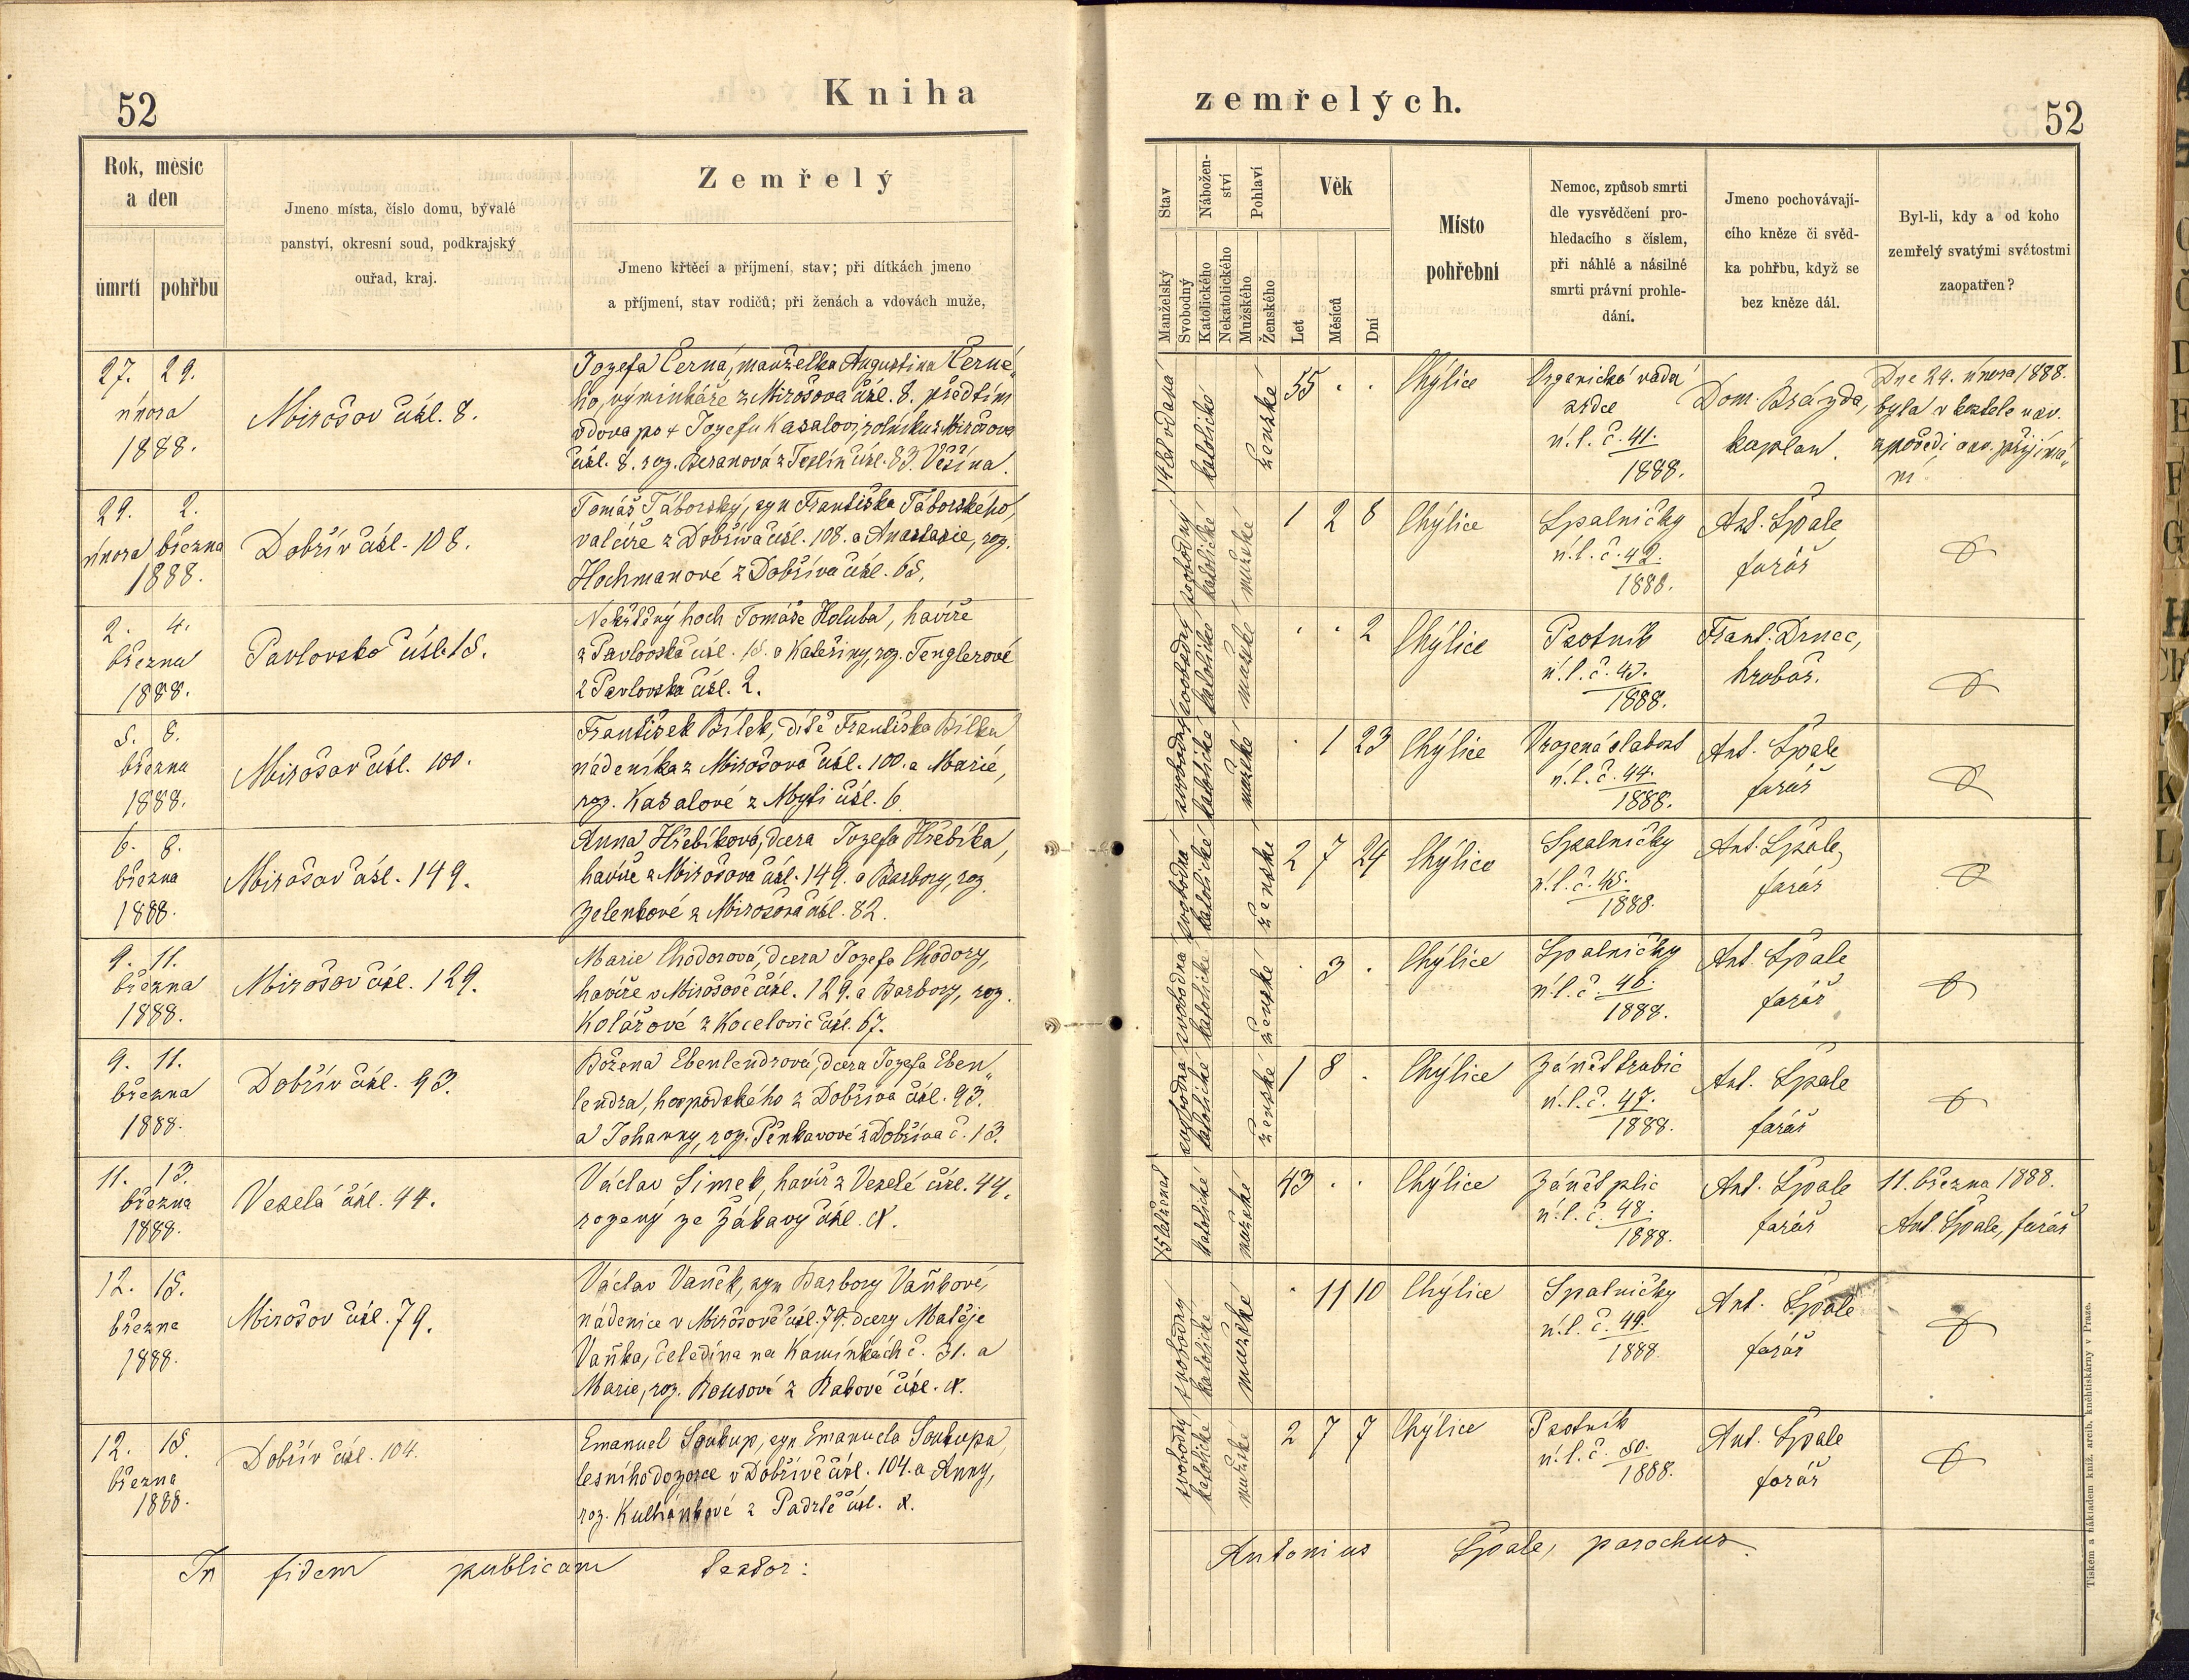 52
Kniha
Rok, měsíc
a den
úmrtí
pohřbu
Jmeno místa, číslo domu, bývalé
panství, okresní soud, podkrajský
ouřad, kraj.
Zemřelý
Jmeno křtěcí a příjmení, stav; při dítkách jmeno
a příjmení, stav rodičů; při ženách a vdovách muže,
27. 29.
února
1888.
Mirošov čísl. 8.
Jozefa Černá, manželka Augustina Černé„
ho, výminkáře z Mirošova čísl. 8. předtím
vdova po + Jozefu Kasalovi, rolníku z Mirošova
čísl. 8. roz. Beranová z Teslín čísl. 83. Věšína.
29. 2.
února března
1888.
Dobřív čísl. 108.
Tomáš Táborský, syn Františka Táborského,
valcíře z Dobříva čísl. 108. a Anastasie, roz.
Hochmanové z Dobříva čísl. 65.
2. 4.
března
1888.
Pavlovsko čísl. 15.
Nekřtěný hoch Tomáše Holuba, havíře
z Pavlovska čísl. 15. a Kateřiny, roz. Tenglerové
z Pavlovska čísl. 2.
5. 8.
března
1888.
Mirošov čísl. 100.
František Bílek, dítě Františka Bílka
nádeníka z Mirošova čísl. 100. a Marie,
roz. Kasalové z Myti čísl. 6.
6. 8.
března
1888.
Mirošov čísl. 149.
Anna Hřebíková, dcera Jozefa Hřebíka,
havíře z Mirošova čísl. 149. a Barbory, roz.
Zelenkové z Mirošova čísl. 82.
9. 11.
března
1888.
Mirošov čísl. 129.
Marie Chodorová, dcera Jozefa Chodory,
havíře v Mirošově čísl. 129. a Barbory, roz.
Kolářové z Kocelovic čísl. 67.
9. 11.
března
1888.
Dobřív čísl. 93.
Božena Ebenlendrová, dcera Jozefa Eben„
lendra, hospodského z Dobříva čísl. 93.
a Johanny, roz. Pěnkavové z Dobříva č. 13.
11. 13.
března
1888.
Veselá čísl. 44.
Václav Šimek, havíř z Veselé čísl. 44.
rozený ze Zábavy čísl.
12. 15.
března
1888.
Mirošov čísl. 79.
Václav Vaněk, syn Barbory Vaňkové,
nádenice v Mirošově čísl. 79. dcery Matěje
Vaňka, čeledína na Kamínkách č. 31. a
Marie, roz. Rousové z Rakové čísl.
12. 15.
března
1888.
Dobřív čísl. 104.
Emanuel Soukup, syn Emanuela Soukupa
lesního dozorce v Dobřívě čísl. 104. a Anny,
roz. Kulhánkové z Padrtě čísl.
In fidem publicam testor:
zemřelých.
52
Stav
Manželský
Svobodný
Nábožen-
ství
Katolického
Nekatolického
Pohlaví
Mužského
Ženského
Věk
Let
Měsíců
Dní
Místo
pohřební
Nemoc, způsob smrti
dle vysvědčení pro-
hledacího s číslem,
při náhlé a násilné
smrti právní prohle-
dání.
Jmeno pochovávají-
cího kněze či svěd-
ka pohřbu, když se
bez kněze dál.
Byl-li, kdy a od koho
zemřelý svatými svátostmi
zaopatřen?
14 let vdaná
katolické
ženské
55 . .
Chýlice
Organická vada
srdce
ú. l. č. 41.
1888.
Dom. Brázda,
kaplan.
Dne 24. února 1888.
byla v kostele u sv.
zpovědi a sv. přijímá„
ní
svobodný
katolické
mužské
1 2 8
Chýlice
Spalničky
ú. l. č. 42.
1888.
Ant. Špale,
farář
svobodný
katolické
mužské
. . 2
Chýlice
Psotník
ú. l. č. 43.
1888.
Frant. Drnec,
hrobař.
svobodný
katolické
mužské
. 1 23
Chýlice
Vrozená slabost
ú. l. č. 44.
1888.
Ant. Špale
farář
svobodná
katolické
ženské
2 7 24
Chýlice
Spalničky
ú. l. č. 45.
1888.
Ant. Špale,
farář
svobodná
katolické
ženské
. 3 .
Chýlice
Spalničky
ú. l. č. 46.
1888.
Ant. Špale
farář
svobodná
katolické
ženské
1 8 .
Chýlice
Zánět hrtanic
ú. l. č. 47.
1888.
Ant. Špale
farář
15 let ženat
katolické
mužské
43 . .
Chýlice
Zánět plic
ú. l. č. 48.
1888.
Ant. Špale
farář
11. března 1888.
Ant. Špale, farář
svobodný
katolické
mužské
. 11 10
Chýlice
Spalničky
ú. l. č. 49.
1888.
Ant. Špale
farář
svobodný
katolické
mužské
2 7 7
Chýlice
Psotník
ú. l. č. 50.
1888.
Ant. Špale
farář
Antonius Špale, parochus.
Tiskem a nákladem kníž. arcib. kněhtiskárny v Praze.